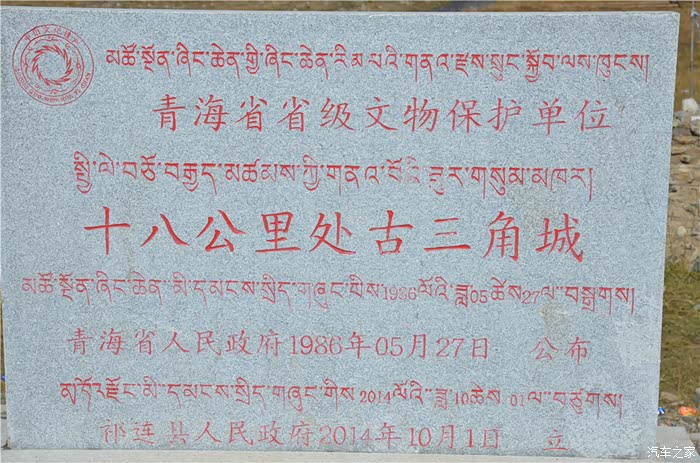 མཚོ་སྔོན་ཞིང་ཆེན་གྱི་ཞིང་ཆེན་རིམ་པའི་གནའ་རྫས་སྲུང་སྐྱོབ་ལས་ཁུངས།
青海省省级文物保护单位
སྤྱི་ལེ་བཅོ་བརྒྱད་མཚམས་ཀྱི་གནའ་བོའི་ཟུར་གསུམ་མཁར།
十八公里处古三角城
མཚོ་སྔོན་ཞིང་ཆེན་མི་དམངས་སྲིད་གཞུང་གིས1986ལོའི་ཟླ05ཚེས27ལ་བསྒྲགས།
青海省人民政府1986年05月27日 公布
རྫོང་མི་དམངས་སྲིད་གཞུང་གིས2014ལོའི་ཟླ10ཚེས 01ལ་བཙུགས།
祁连县人民政府2014年10月1日 立
汽车之家